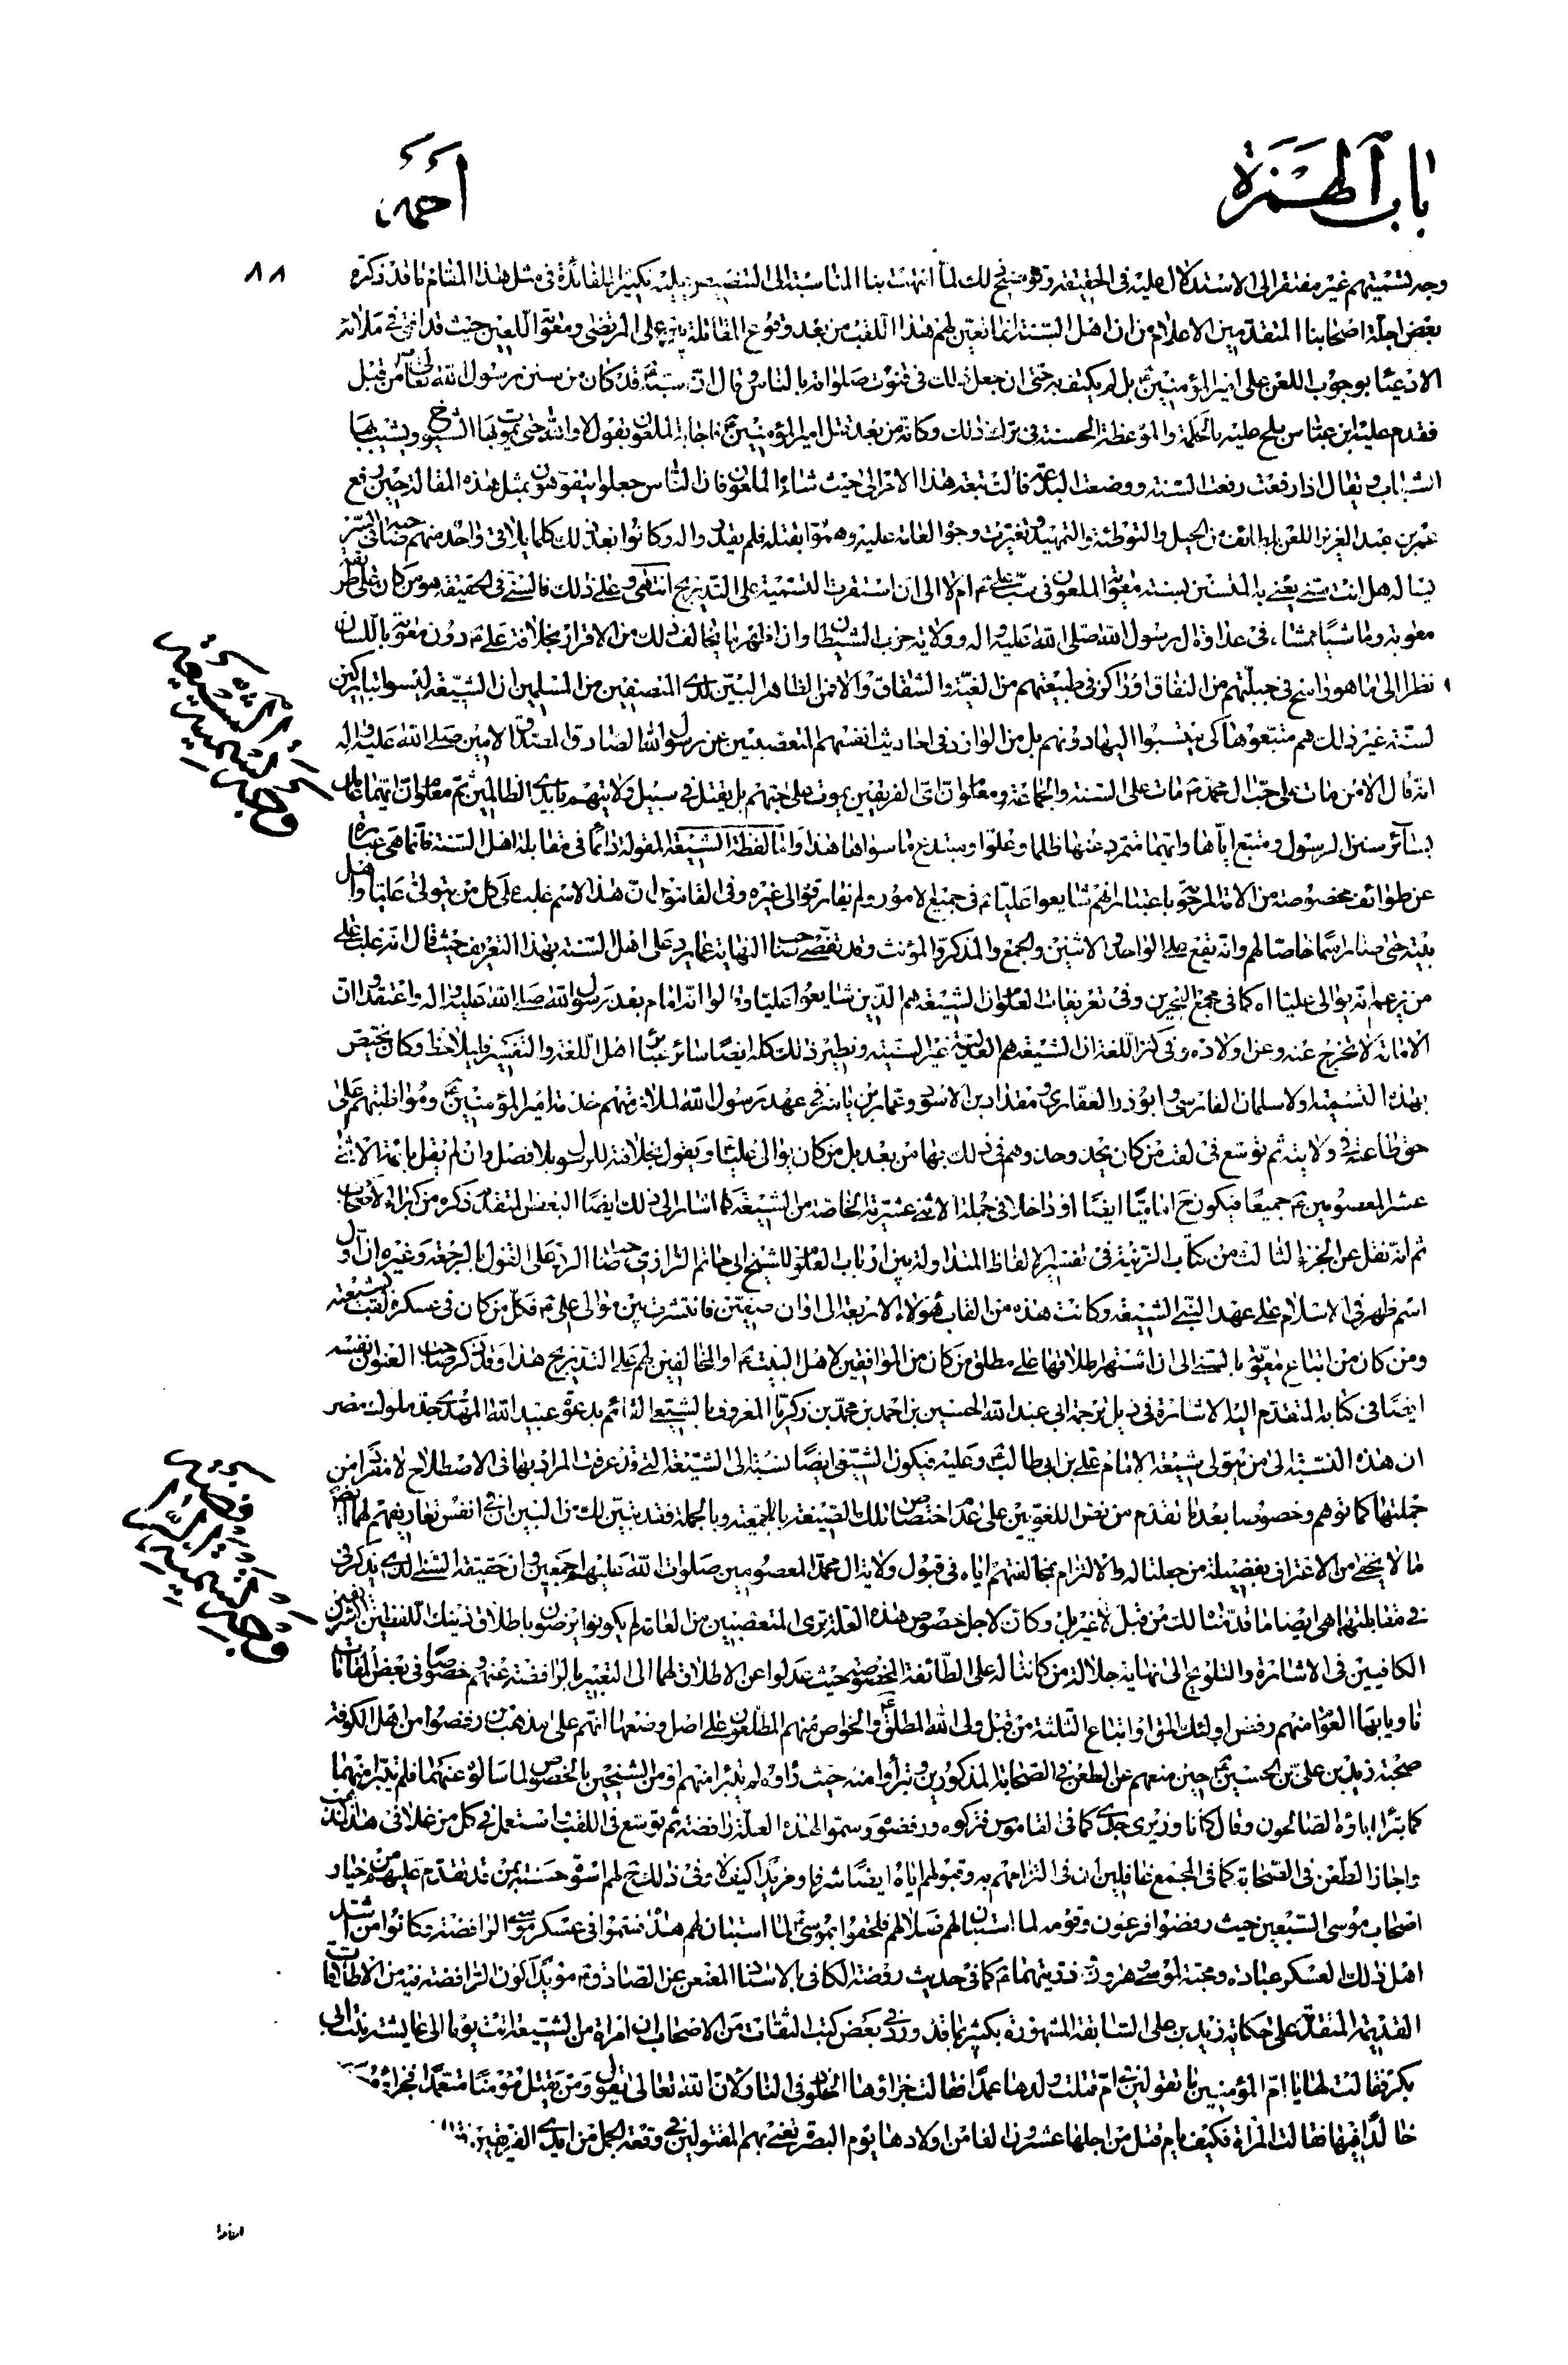 باب الهمزة
أحمد
٨٨
وجه تسميتهم غير مفتقر الى الاستدلال عليه فى الحقيقة وتوضيح ذلك لما انتهت بنا المناسبة الى التنصيص عليه تكثيرا للفائدة فى مثل هذا المقام ما قد ذكره
بعض اجلة اصحابنا المتقدمين الاعلام من ان اهل السنة انما تعين لهم هذا اللقب من بعد وقوع المقاتلة بين على المرتضى ومعوية اللعين حيث قد افتى فى ملائه
الادعياء بوجوب اللعن على امير المؤمنين ع بل لم يكتف به حتى ان جعل ذلك فى قنوت صلواته بالناس قال ان سبه قد كان من سنن رسول الله تعالى من قبل
فقدم عليه ابن عباس يلح عليه بالحكمة والموعظة الحسنة فى ترك ذلك وكانه من بعد قتل امير المؤمنين ع فاجابه الملعون بقوله لا والله حتى يموت بها الشيوخ ويشيب بها
الشباب ويقال اذا رفعت رفعت السنة ووضعت البدعة قالت تبعه هذا الامر الى حيث شاء الملعون فان الناس جعلوا يتفوهون بمثل هذه المقالة حين رفع
عمر بن عبد العزيز اللعن بلطائف من الحيل والتوطئة والتمهيد وتغيرت وجوه العامة عليه وهموا بقتله فلم يقدروا له وكانوا بعد ذلك كلما يلاقى واحد منهم صاحبه فى السر
يساله هل انت سنى يعنى به المتسنن بسنة معوية الملعون فى سب على ع ام لا الى ان استقرت التسمية على التدريج انتهى وعلى ذلك فالسنى فى الحقيقة هو من كان على طريقة
معوية وماشيا ممشاه فى عداوة ال رسول الله صلى الله عليه واله وولاية حزب الشيطان وان اظهر ما يخالف ذلك من الاقرار بخلافة على ع دون معوية باللسان
نظرا الى ما هو راسخ فى جبلتهم من النفاق او راكز فى طبيعتهم من الغى والشقاق والامر الظاهر البين لدى المنصفين من المسلمين ان الشيعة ليسوا بتاركين
لسنة غير ذلك هم متبعوها كى ينتسبوا اليها دونهم بل من الوارد فى احاديث انفسهم المتعصبين عن رسول الله الصادق المصدق الامين صلى الله عليه واله
انه قال الا من مات على حب ال محمد ع مات على السنة والجماعة ومعلوم ان اى الفريقين يموت على حبهم بل يقتل فى سبيل ولايتهم بايدى الظالمين ثم معلوم ان ايهما عامل
بسائر سنن الرسول ومتبع اياها وايهما متمرد عنها ظلما وعلوا ومبتدع ما سواها هذا واما لفظة الشيعة المقولة دائما فى مقابلة اهل السنة فانما هى عبارة
عن طوائف مخصوصة من الامة المرحومة باعتبار انهم شايعوا عليا ع فى جميع الامور ولم يفارقوه الى غيره وفى القاموس ان هذا الاسم غلب على كل من يتولى عليا واهل
بيته حتى صار اسما خاصا لهم وانه يقع على الواحد والاثنين والجمع والمذكر والمؤنث وقد تفصى صاحب النهاية عما يرد على اهل السنة بهذا التعريف حيث قال انه غلب على
من زعم انه يوالى عليا اه كما فى مجمع البحرين وفى تعريفات العلوم ان الشيعة هم الذين شايعوا عليا وقالوا انه امام بعد رسول الله صلى الله عليه واله واعتقدوا ان
الامامة لا تخرج عنه وعن اولاده وفى كنز اللغة ان الشيعة هم العدلية غير السنية ونظير ذلك كله ايضا سائر عبائر اهل اللغة والتفسير فليلاحظ وكان يختص
بهذا التسمية اولا سلمان الفارسى وابو ذر الغفارى ومقداد بن الاسود وعمار بن ياسر فى عهد رسول الله لملازمتهم خدمة امير المؤمنين ع ومواظبتهم على
حق طاعته فى ولايته ثم توسع فى لقب من كان يحذو حذوهم فى ذلك بها من بعد بل من كان يوالى عليا ويقول بخلافته للرسول بلا فصل وان لم يقل بائمة الاثنى
عشر المعصومين ع جميعا فيكون ح اماميا ايضا او داخلا فى جملة الاثنى عشرية الخاصة من الشيعة كما اشار الى ذلك ايضا البعض المتقدم ذكره من كبراء الاصحاب
ثم انه نقل عن الجزء الثالث من كتاب الزينة فى تفسير الالفاظ المتداولة بين ارباب العلوم للشيخ ابى حاتم الرازى صاحب الرد على القول بالرجعة وغيره ان اول
اسم ظهر فى الاسلام على عهد النبى الشيعة وكانت هذه من القاب هؤلاء الاربعة الى اوان صفين فانتشرت بين موالى على ع فكل من كان فى عسكره لقب بالشيعة
ومن كان من اتباع معوية بالسنى الى ان اشتهر اطلاقها على مطلق من كان من الموافقين لاهل البيت ع او المخالفين لهم على التدريج هذا وقد ذكر صاحب العنوان نفسه
ايضا فى كتابه المتقدم اليه الاشارة فى ذيل ترجمة ابى عبد الله الحسين بن احمد بن محمد بن زكريا المعروف بالشيعى القائم بدعوة عبيد الله المهدى جد ملوك مصر
ان هذه النسبة الى من يتولى شيعة الامام على بن ابى طالب ع وعليه فيكون الشيعى ايضا نسبة الى الشيعة التى قد عرفت المراد بها فى الاصطلاح لا مفردا من
جملتها كما توهم وخصوصا بعد ما تقدم من نص اللغويين على عدم اختصاص تلك الصيغة بالجمعية وبالجملة فقد تبين لك من البين ان فى انفس تعاريفهم لهما ايضا
ما لا يخفى من الاعتراف بفضيلة من جعلناه له والالتزام بمخالفتهم اياه فى قبول ولاية ال محمد المعصومين صلوات الله عليهم اجمعين وان حقيقة السنى الذى يذكر فى
فى مقابلتها هى ايضا ما قدمناه لك من قبل لا غير بل وكان لاجل خصوص هذه العلة ترى المتعصبين من العامة لم يكونوا يرضون باطلاق ذينك اللفظين الشريفين
الكافيين فى الاشارة والتلويح الى نهاية جلالة من كانتا له على الطائفة المخصوصة حيث عدلوا عن الاطلاق لهما الى التعبير بالرافضة عنهم خصوصا فى بعض المقامات
ناويا بها العوام منهم رفض اولئك المردة واتباع الثلثة من قبل ولى الله المطلق ع والخواص منهم المطلعون على اصل وضعها انهم على مذهب من رفضوا من اهل الكوفة
صحبة زيد بن على بن الحسين ع حين منعهم عن الطعن فى الصحابة المذكورين وتبرأوا منه حيث راوه لم يتبرا منهم او من الشيخين بالخصوص لما سالوه عنهما فلم يتبرا منهما
كما تبرا اباؤه الصالحون وقال كانا وزيرى جدى كما فى القاموس فتركوه ورفضوه وسموا لهذه العلة رافضة ثم توسع فى اللقب واستعمل فى كل من غلا فى هذا المذهب
واجاز الطعن فى الصحابة كما فى المجمع غافلين ان فى التزامهم به وقبولهم اياه ايضا شرفا ومزيدا كيف لا وفى ذلك ح لهم اسوة حسنة بمن قد تقدم عليهم من خيار
اصحاب موسى السبعين حيث رفضوا فرعون وقومه لما استبان لهم ضلالهم فلحقوا بموسى ع لما استبان لهم هداه فسموا فى عسكر موسى الرافضة وكانوا من اشد
اهل ذلك العسكر عبادة ومحبة لموسى وهرون وذريتهما ع كما فى حديث روضة الكافى بالاسناد المعنعن عن الصادق ع مؤيدا لكون الرافضة فيه من الاطلاقات
القديمة المتقدمة على حكاية زيد بن على السابقة المشهورة بكثير ما قد ورد فى بعض كتب الثقات من الاصحاب ان امراة من الشيعة اتت يوما الى عايشة بنت ابى
بكر فقالت لها يا ام المؤمنين ما تقولين فى ام قتلت ولدها عمدا فقالت جزاؤها الخلود فى النار لان الله تعالى يقول ومن يقتل مؤمنا متعمدا فجزاؤه جهنم
خالدا فيها فقالت المراة فكيف بام قتل من اجلها عشرون الفا من اولادها يوم البصرة تعنى بهم المقتولين فى وقعة الجمل من ايدى الفريقين
وجه التسمية بالشيعة
وجه التسمية بالرافضة